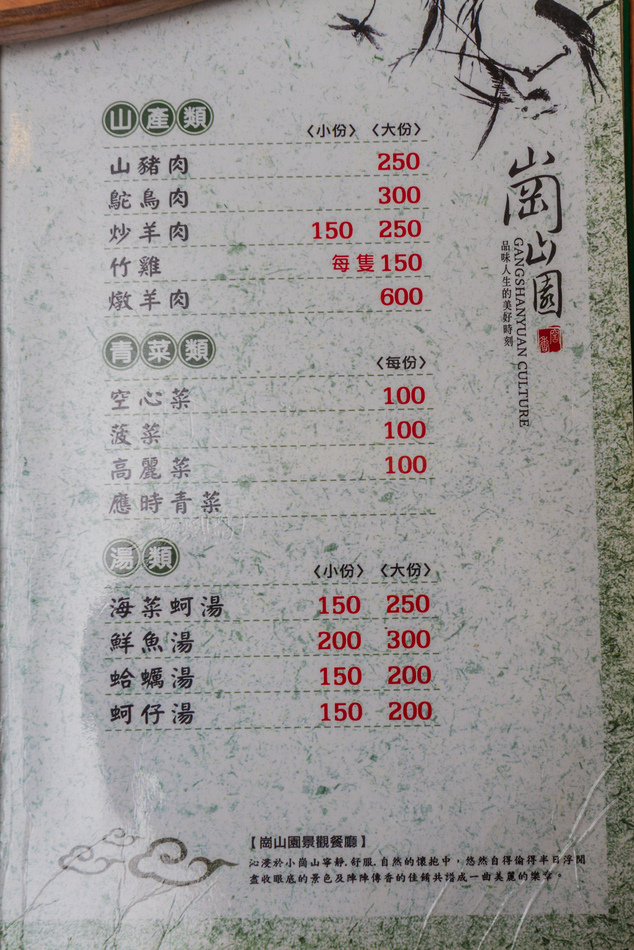 山產類
〈小份〉 〈大份〉
山豬肉 250
鴕鳥肉 300
炒羊肉 150 250
竹雞 每隻150
燉羊肉 600
青菜類
〈每份〉
空心菜 100
菠菜 100
高麗菜 100
應時青菜
湯類
〈小份〉 〈大份〉
海菜蚵湯 150 250
鮮魚湯 200 300
蛤蠣湯 150 200
蚵仔湯 150 200
崗山園
GANGSHANYUAN CULTURE
品味人生的美好時刻
【崗山園景觀餐廳】
沁漫於小崗山寧靜.舒服.自然的懷抱中，悠然自得偷得半日浮閒
盡收眼底的景色及陣陣傳香的佳餚共譜成一曲美麗的樂章。